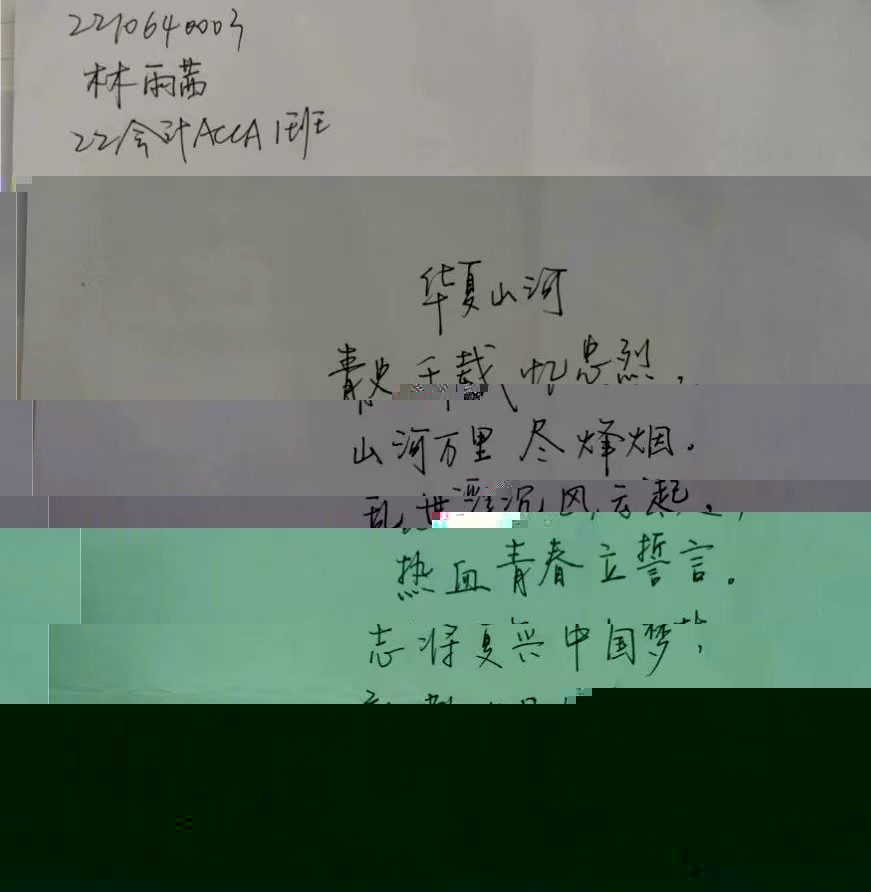 2210640003
林雨茜
22会计ACCA1班
华夏山河
青史千载忆忠烈，
山河万里尽烽烟。
乱世沉风云起，
热血青春立誓言。
志将复兴中国梦，